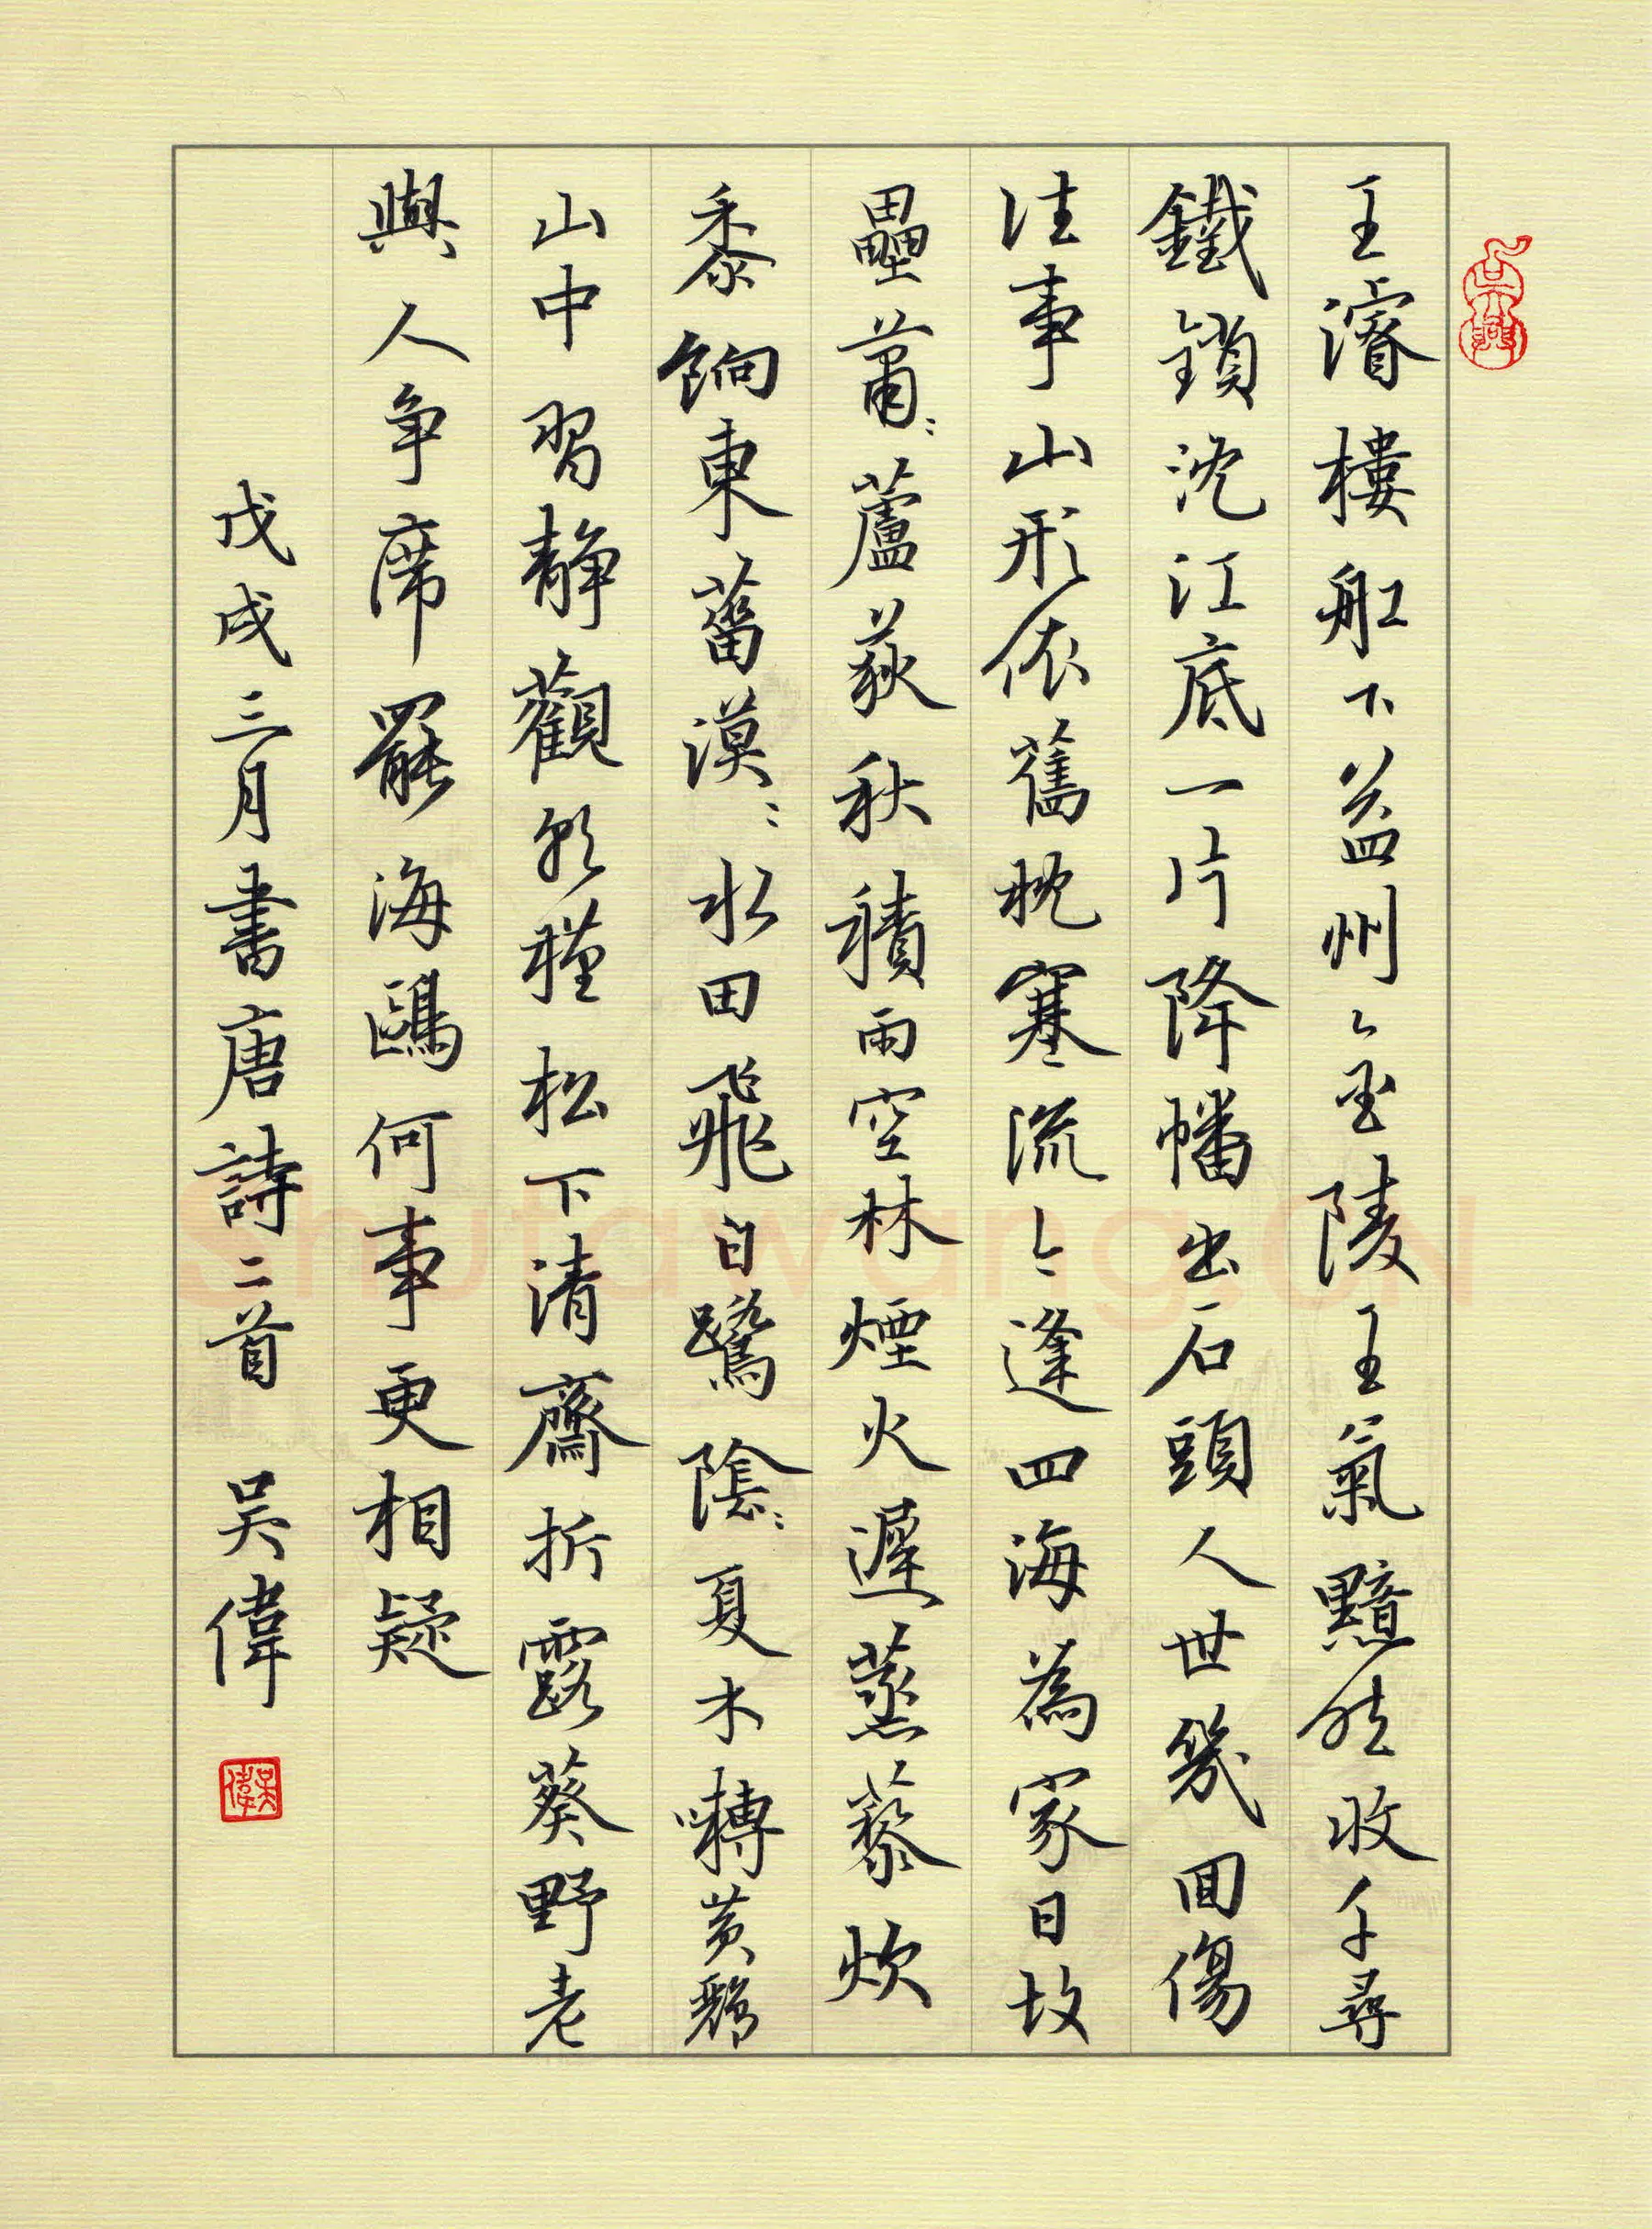 王濬樓舡下益州金陵王氣黯然收千尋
鐵鎖沈江底一片降幡出石頭人世幾回傷
往事山形依舊枕寒流今逢四海為家日故
壘蕭〻蘆荻秋積雨空林煙火遲蒸藜炊
黍餉東菑漠〻水田飛白鷺陰〻夏木囀黃鸝
山中習靜觀朝槿松下清齋折露葵野老
與人爭席罷海鷗何事更相疑
戊戌三月書唐詩二首 吳偉
吳偉
Shufawang.CN